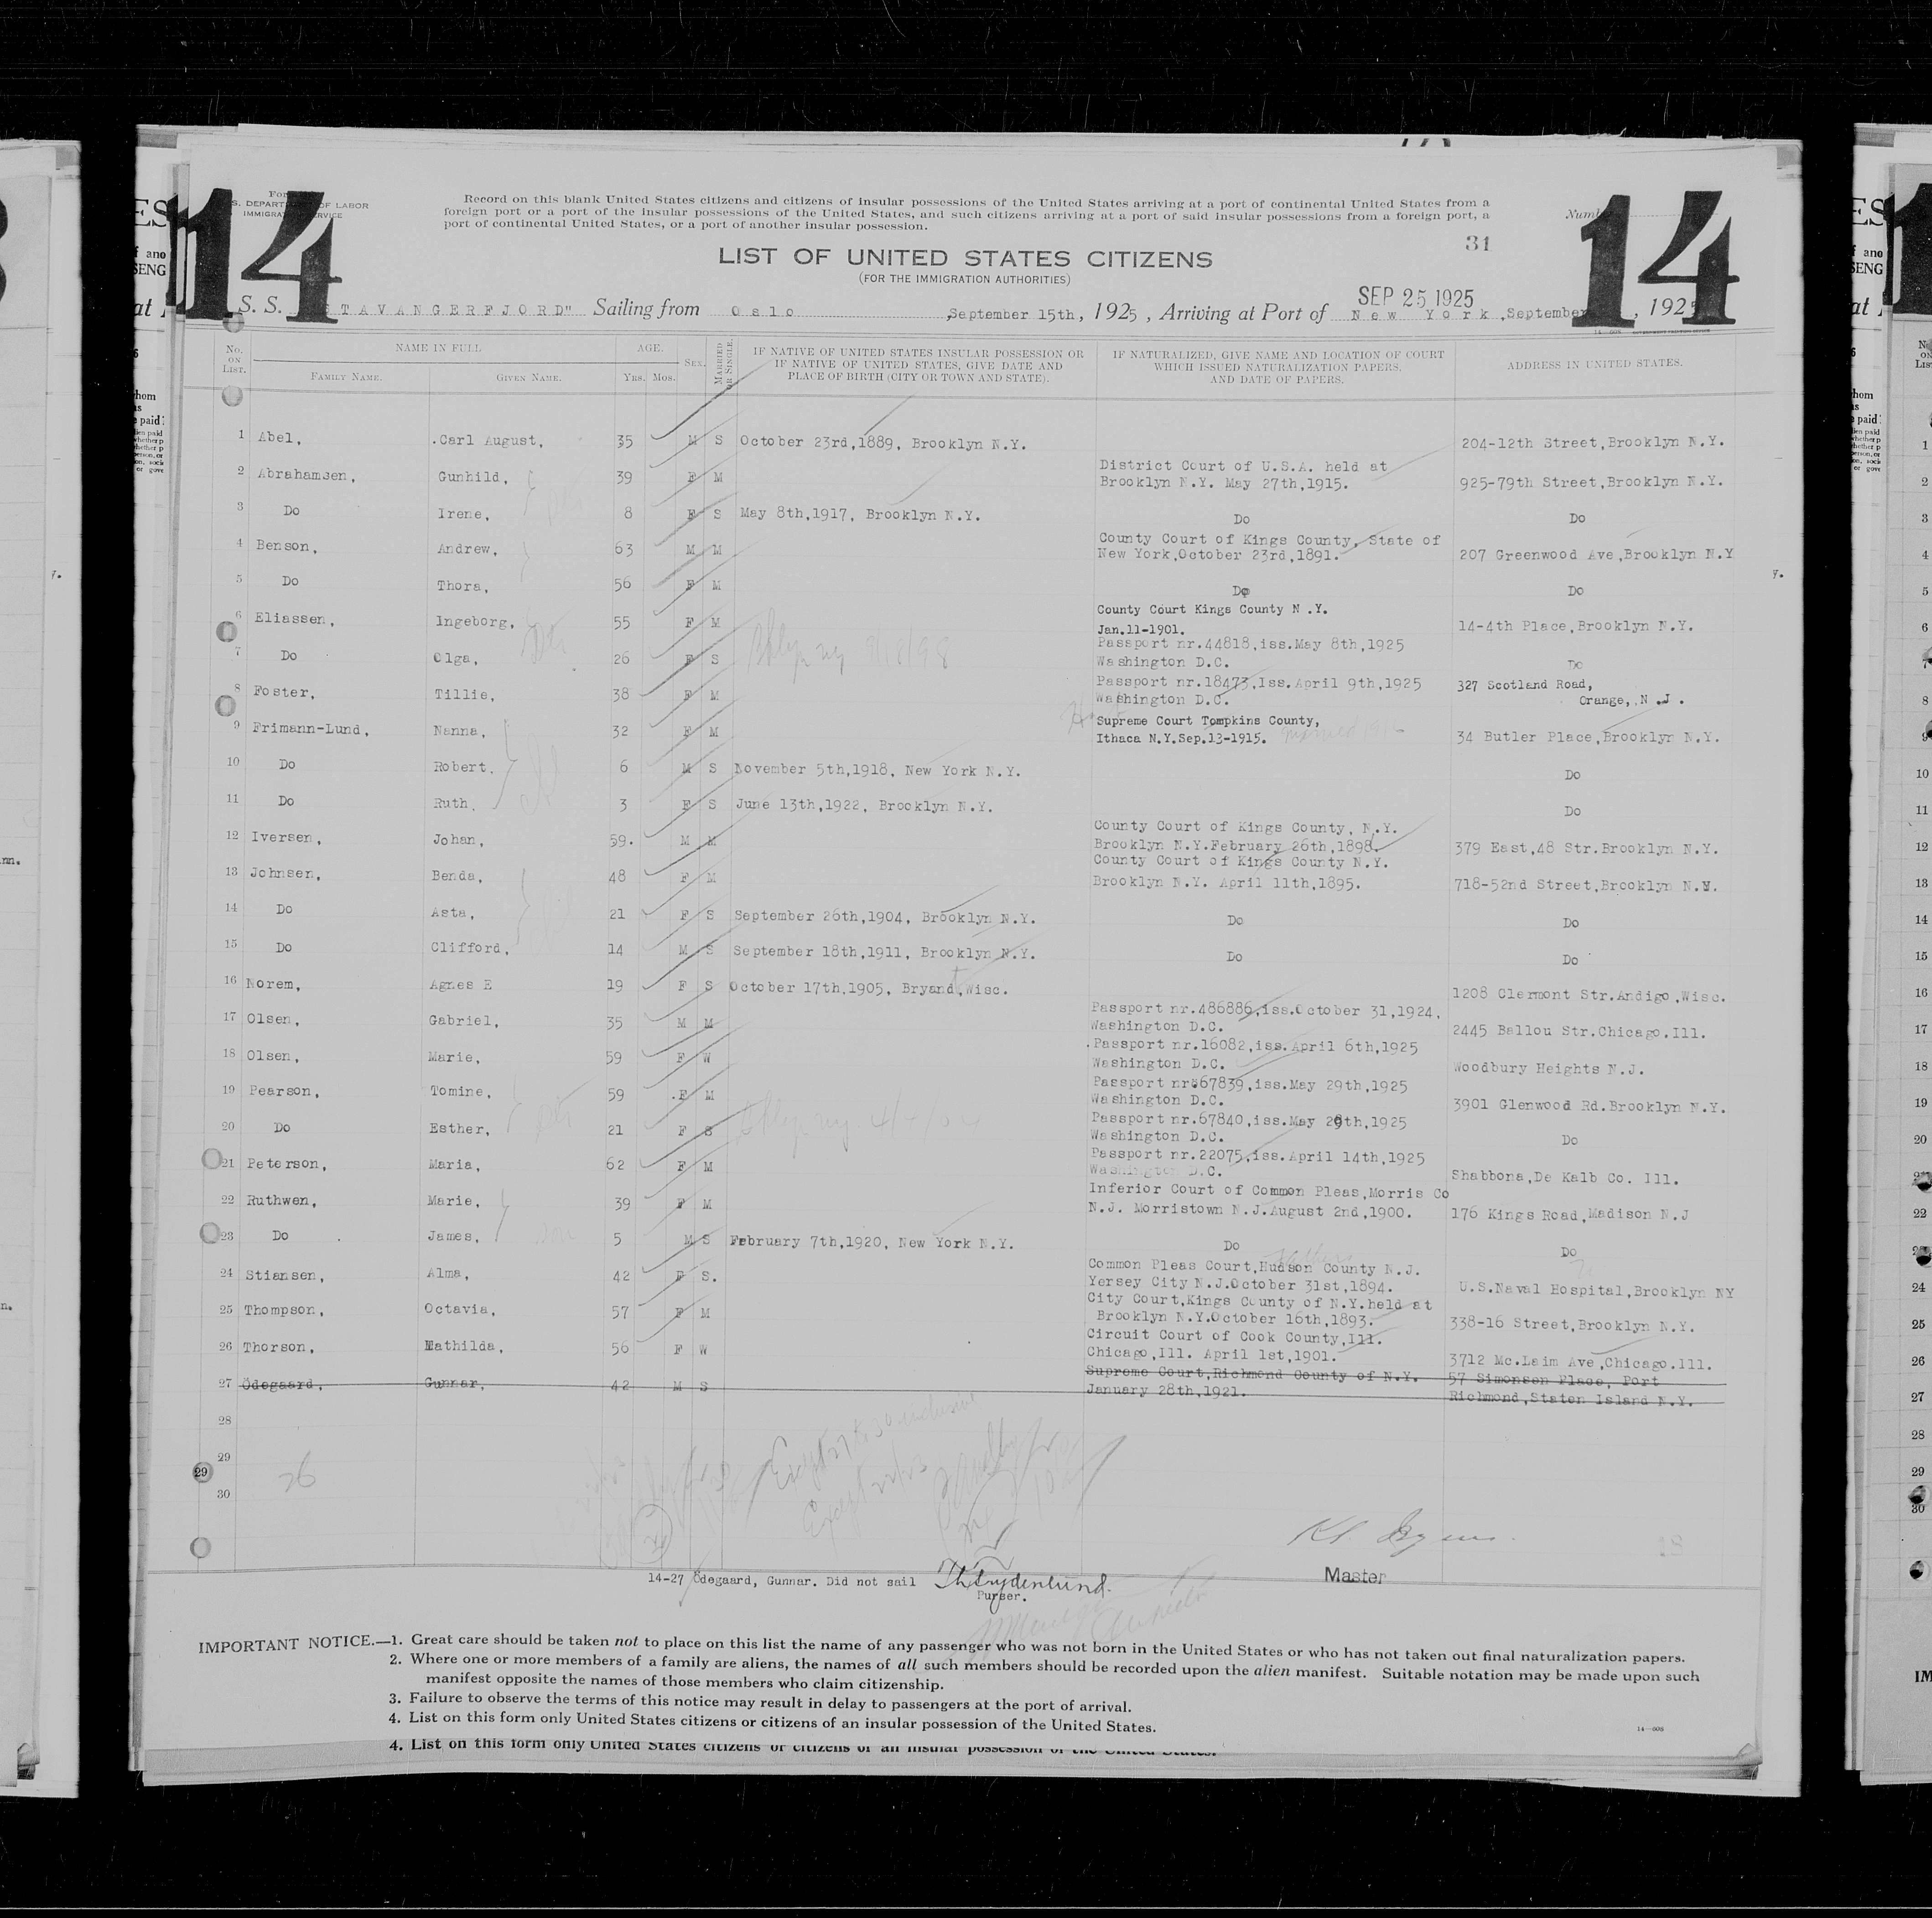 14
14
DEPARTMENT OF LABOR
IMMIGRATION SERVICE
Record on this blank United States citizens and citizens of insular possessions of the United States arriving at a port of continental United States from a
foreign port or a port of the insular possessions of the United States, and such citizens arriving at a port of said insular possessions from a foreign port, a
port of continental United States, or a port of another insular possession.
31
LIST OF UNITED STATES CITIZENS
(FOR THE IMMIGRATION AUTHORITIES)
SEP 25 1925
S. S. TAVANGERFJORD" Sailing from Oslo ,September 15th, 1925, Arriving at Port of New York ,September , 192
No. ON LIST. NAME IN FULL AGE. SEX. MARRIED OR SINGLE. IF NATIVE OF UNITED STATES INSULAR POSSESSION OR IF NATIVE OF UNITED STATES, GIVE DATE AND PLACE OF BIRTH (CITY OR TOWN AND STATE). IF NATURALIZED, GIVE NAME AND LOCATION OF COURT WHICH ISSUED NATURALIZATION PAPERS, AND DATE OF PAPERS. ADDRESS IN UNITED STATES.
FAMILY NAME. GIVEN NAME. YRS. MOS.
1 Abel, .Carl August, 35 M S October 23rd,1889, Brooklyn N.Y. 204-12th Street,Brooklyn N.Y.
2 Abrahamsen, Gunhild, 39 F M District Court of U.S.A. held at
Brooklyn N.Y. May 27th,1915. 925-79th Street,Brooklyn N.Y.
3 Do Irene, 8 F S May 8th,1917, Brooklyn N.Y. Do Do
4 Benson, Andrew, 63 M M County Court of Kings County, State of
New York,October 23rd,1891. 207 Greenwood Ave,Brooklyn N.Y
5 Do Thora, 56 F M Do Do
6 Eliassen, Ingeborg, 55 F M County Court Kings County N.Y.
Jan.11-1901. 14-4th Place,Brooklyn N.Y.
7 Do Olga, 26 F S Passport nr.44818,iss.May 8th,1925
Washington D.C. Do
8 Foster, Tillie, 38 F M Passport nr.18473,Iss.April 9th,1925
Washington D.C. 327 Scotland Road,
Orange, N.J.
9 Frimann-Lund, Nanna, 32 F M Supreme Court Tompkins County,
Ithaca N.Y.Sep.13-1915. 34 Butler Place,Brooklyn N.Y.
10 Do Robert, 6 M S November 5th,1918, New York N.Y. Do
11 Do Ruth, 3 F S June 13th,1922, Brooklyn N.Y. Do
12 Iversen, Johan, 59. M M County Court of Kings County, N.Y.
Brooklyn N.Y.February 26th,1898. 379 East,48 Str.Brooklyn N.Y.
13 Johnsen, Benda, 48 F M County Court of Kings County N.Y.
Brooklyn N.Y. April 11th,1895. 718-52nd Street,Brooklyn N.Y.
14 Do Asta, 21 F S September 26th,1904, Brooklyn N.Y. Do Do
15 Do Clifford, 14 M S September 18th,1911, Brooklyn N.Y. Do Do
16 Norem, Agnes E 19 F S October 17th,1905, Bryant,Wisc. 1208 Clermont Str.Andigo,Wisc.
17 Olsen, Gabriel, 35 M M Passport nr.486886,iss.October 31,1924,
Washington D.C. 2445 Ballou Str.Chicago.Ill.
18 Olsen, Marie, 59 F W Passport nr.16082,iss.April 6th,1925
Washington D.C. Woodbury Heights N.J.
19 Pearson, Tomine, 59 F M Passport nr.67839,iss.May 29th,1925
Washington D.C. 3901 Glenwood Rd.Brooklyn N.Y.
20 Do Esther, 21 F S Passport nr.67840,iss.May 29th,1925
Washington D.C. Do
21 Peterson, Maria, 62 F M Passport nr.22075,iss.April 14th,1925
Washington D.C. Shabbona,De Kalb Co. Ill.
22 Ruthwen, Marie, 39 F M Inferior Court of Common Pleas,Morris Co
N.J. Morristown N.J.August 2nd,1900. 176 Kings Road,Madison N.J
23 Do James, 5 M S February 7th,1920, New York N.Y. Do Do
24 Stiansen, Alma, 42 F S. Common Pleas Court,Hudson County N.J.
Yersey City N.J.October 31st,1894. U.S.Naval Hospital,Brooklyn NY
25 Thompson, Octavia, 57 F M City Court,Kings County of N.Y.held at
Brooklyn N.Y.October 16th,1893. 338-16 Street,Brooklyn N.Y.
26 Thorson, Mathilda, 56 F W Circuit Court of Cook County,Ill.
Chicago,Ill. April 1st,1901. 3712 Mc.Laim Ave,Chicago.Ill.
27 Ödegaard, Gunnar, 42 M S Supreme Court,Richmond County of N.Y.
January 28th,1921. 57 Simonsen Place, Port
Richmond,Staten Island N.Y.
28
29
30
26
14-27 Ödegaard, Gunnar. Did not sail
Purser.
Master
IMPORTANT NOTICE.—1. Great care should be taken not to place on this list the name of any passenger who was not born in the United States or who has not taken out final naturalization papers.
2. Where one or more members of a family are aliens, the names of all such members should be recorded upon the alien manifest. Suitable notation may be made upon such
manifest opposite the names of those members who claim citizenship.
3. Failure to observe the terms of this notice may result in delay to passengers at the port of arrival.
4. List on this form only United States citizens or citizens of an insular possession of the United States.
14—608
4. List on this form only United States citizens or citizens of an insular possession of the United States.